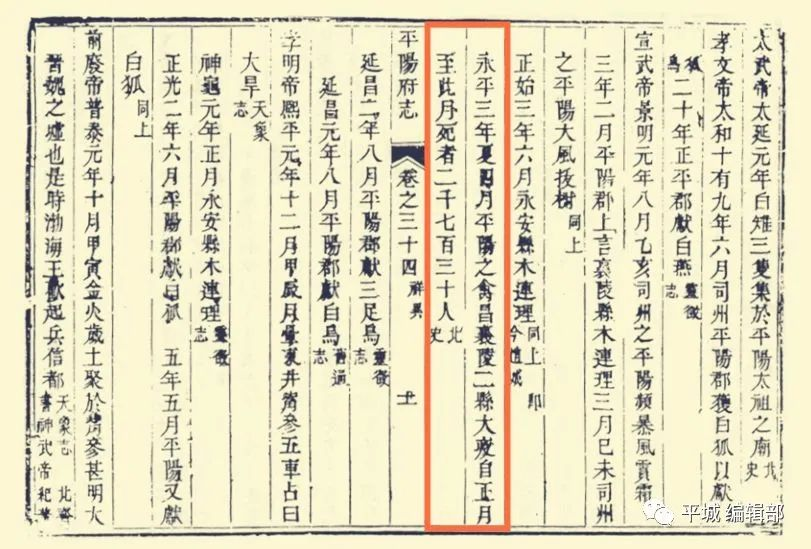 太武帝太延元年白雉三隻集於平陽太祖之廟 北史
孝文帝太和十有九年六月司州平陽郡獲白狐以獻
二十年正平郡獻白燕 靈徵志
宣武帝景明元年八月乙亥司州之平陽頻暴風霣霜
三年二月平陽郡上言襄陵縣木連理三月己未司州
之平陽大風拔樹 同上
正始三年六月永安縣木連理 同上
永平三年夏四月平陽之禽昌襄陵二縣大疫自正月
至此月死者二千七百三十人 北史
平陽府志 卷之三十四 祥異 十一
延昌二年八月平陽郡獻三足烏 靈徵志
延昌元年八月平陽郡獻白烏 舊通志
孝明帝熙平元年十二月甲辰月暈東井觜參五車占曰
大旱 天象志
神龜元年正月永安縣木連理 靈徵志
正光二年六月平陽郡獻白狐 五年五月平陽又獻
白狐 同上
前廢帝普泰元年十月甲寅金火歲土聚於觜參甚明大
晉魏之墟也是時渤海王歡起兵信都 天象志 北齊書神武帝紀
平城 编辑部